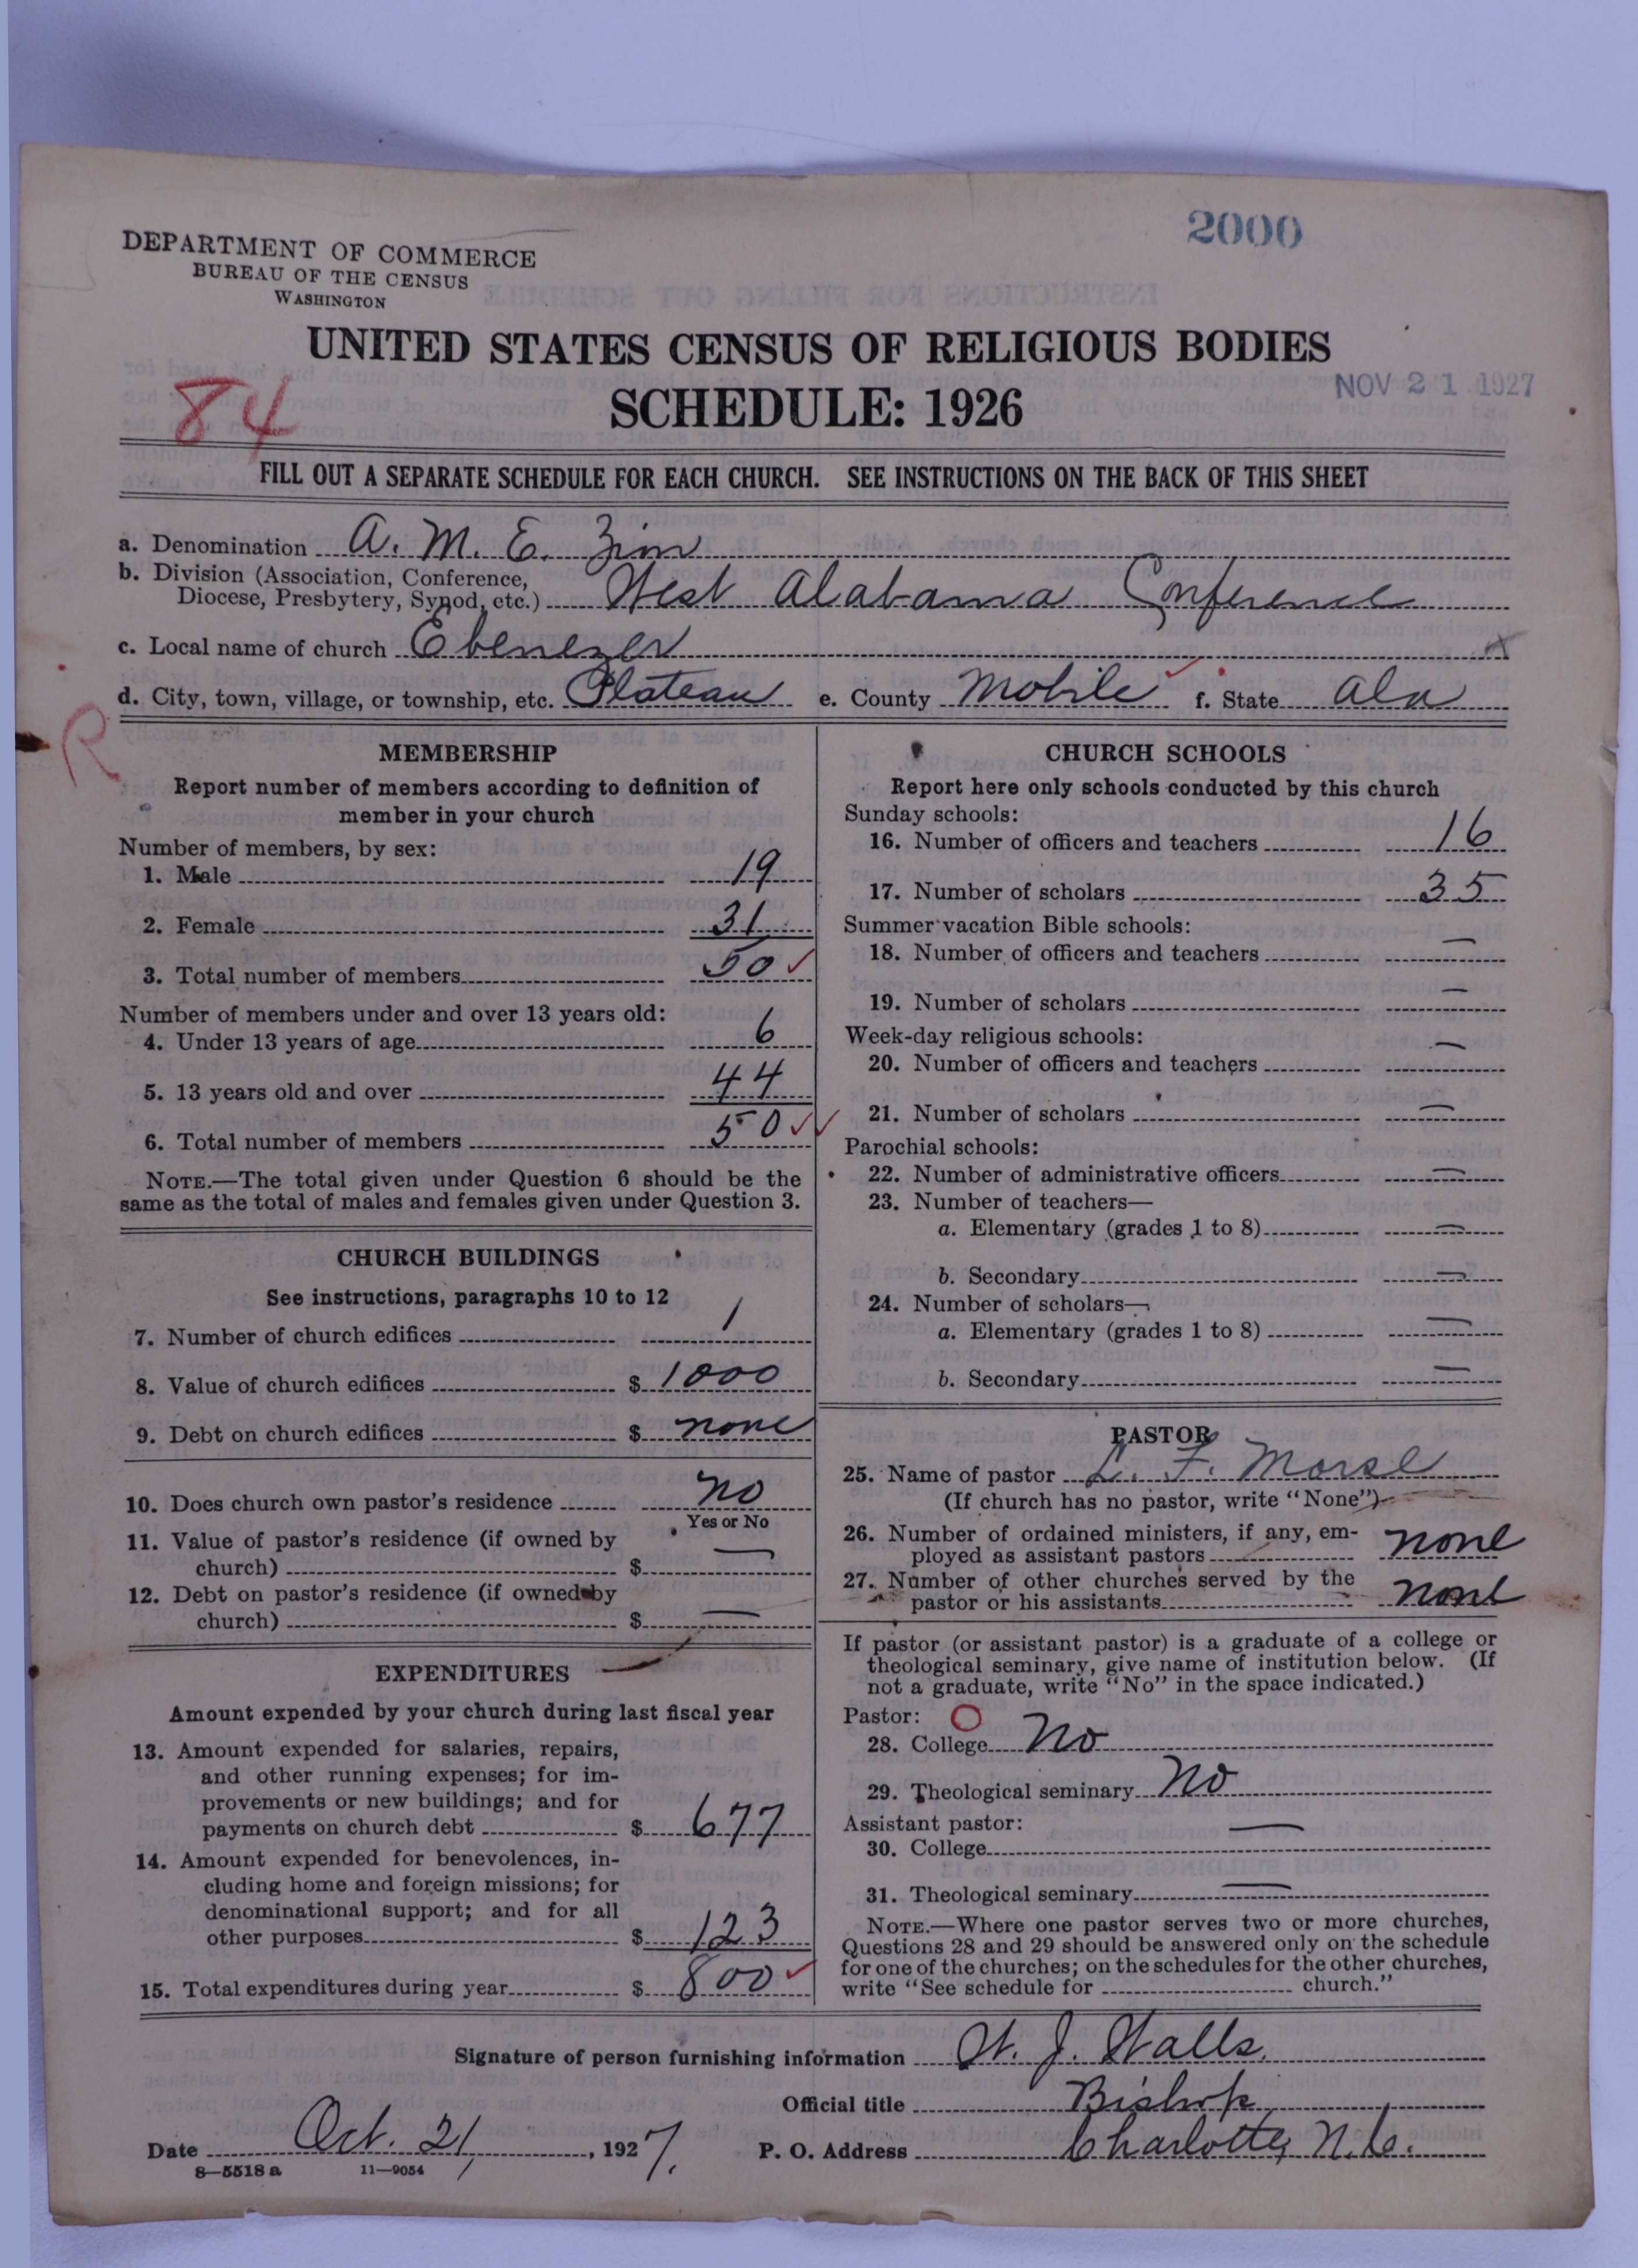 2000
DEPARTMENT OF COMMERCE
BUREAU OF THE CENSUS
WASHINGTON
UNITED STATES CENSUS OF RELIGIOUS BODIES
SCHEDULE: 1926
NOV 21 1927
84
FILL OUT A SEPARATE SCHEDULE FOR EACH CHURCH. SEE INSTRUCTIONS ON THE BACK OF THIS SHEET
a. Denomination A. M. E. Zion
b. Division (Association, Conference,
Diocese, Presbytery, Synod, etc.) West Alabama Conference
c. Local name of church Ebenezer
d. City, town, village, or township, etc. Plateau e. County Mobile f. State Ala
R
MEMBERSHIP
Report number of members according to definition of
member in your church
Number of members, by sex:
1. Male 19
2. Female 31
3. Total number of members 50
Number of members under and over 13 years old:
4. Under 13 years of age 6
5. 13 years old and over 44
6. Total number of members 50
NOTE.—The total given under Question 6 should be the
same as the total of males and females given under Question 3.
CHURCH BUILDINGS
See instructions, paragraphs 10 to 12
7. Number of church edifices 1
8. Value of church edifices $ 1000
9. Debt on church edifices $ none
10. Does church own pastor's residence no
Yes or No
11. Value of pastor's residence (if owned by
church) $ —
12. Debt on pastor's residence (if owned by
church) $ —
EXPENDITURES
Amount expended by your church during last fiscal year
13. Amount expended for salaries, repairs,
and other running expenses; for im-
provements or new buildings; and for
payments on church debt $ 677
14. Amount expended for benevolences, in-
cluding home and foreign missions; for
denominational support; and for all
other purposes $ 123
15. Total expenditures during year $ 800
CHURCH SCHOOLS
Report here only schools conducted by this church
Sunday schools:
16. Number of officers and teachers 16
17. Number of scholars 35
Summer vacation Bible schools:
18. Number of officers and teachers —
19. Number of scholars —
Week-day religious schools:
20. Number of officers and teachers —
21. Number of scholars —
Parochial schools:
22. Number of administrative officers —
23. Number of teachers—
a. Elementary (grades 1 to 8) —
b. Secondary —
24. Number of scholars—
a. Elementary (grades 1 to 8) —
b. Secondary —
PASTOR
25. Name of pastor L. F. Morse
(If church has no pastor, write "None")
26. Number of ordained ministers, if any, em-
ployed as assistant pastors none
27. Number of other churches served by the
pastor or his assistants none
If pastor (or assistant pastor) is a graduate of a college or
theological seminary, give name of institution below. (If
not a graduate, write "No" in the space indicated.)
Pastor:
28. College No
29. Theological seminary No
Assistant pastor:
30. College —
31. Theological seminary —
NOTE.—Where one pastor serves two or more churches,
Questions 28 and 29 should be answered only on the schedule
for one of the churches; on the schedules for the other churches,
write "See schedule for church."
Signature of person furnishing information W. J. Walls
Official title Bishop
Date Oct. 21, 1927. P. O. Address Charlotte, N.C.
8—5518 a 11—9054